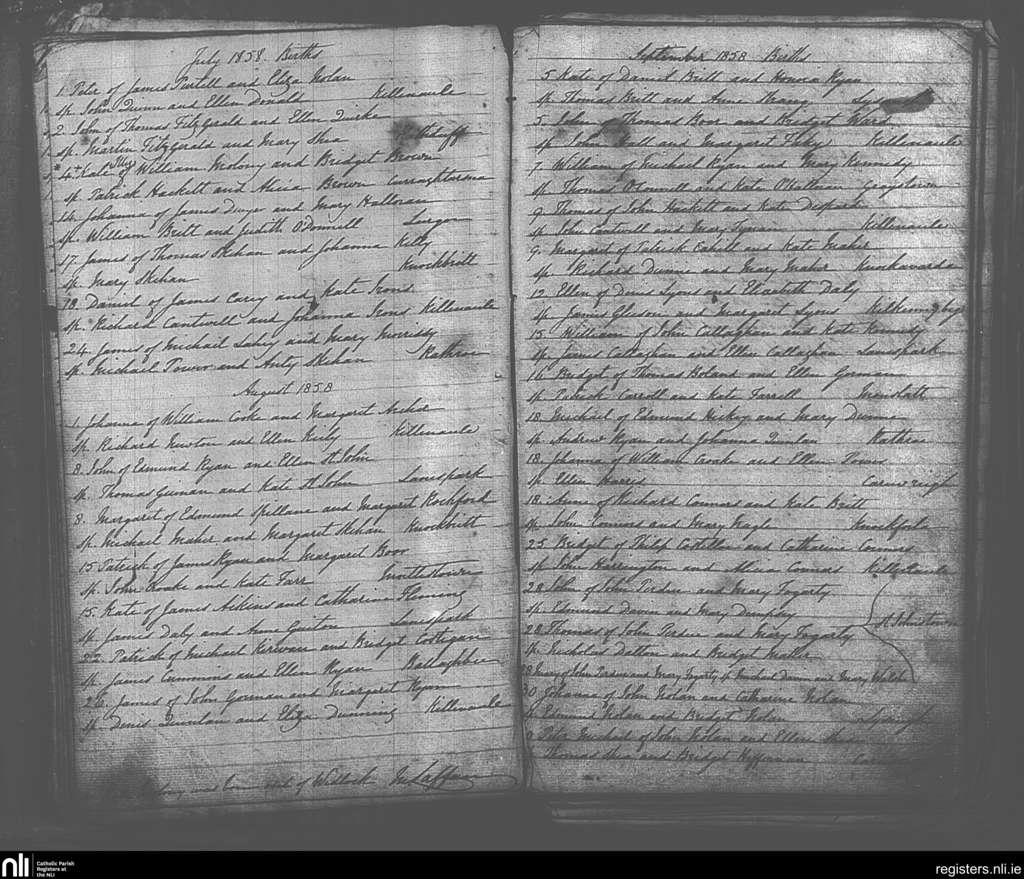 July 1858. Births
1 Peter of James Purtell and Eliza Nolan
sp. John Dunn and Ellen Donald Killenaule
2. John of Thomas FitzGerald and Ellen Quirke
sp. Martin Fitzgerald and Mary Shea
4th Kate of William Molony and Bridget Brown
sp. Patrick Hackett and Alicia Brown Curraghtarsna
14. Johanna of James Dwyer and Mary Halloran
sp. William Britt and Judith O'Donnell Lurgoe
17. James of Thomas Skehan and Johanna Kelly
sp. Mary Skehan Knockbritt
18. Daniel of James Carey and Kate Irons
sp. Richard Cantwell and Johanna Irons Killenaule
24. James of Michael Lahey and Mary Morrissy
sp. Michael Power and Anty Skehan Rathroe
August 1858
1 Johanna of William Cooke and Margaret Archer
sp. Richard Newton and Ellen Kiely Killenaule
8. John of Edmund Ryan and Ellen St. John
sp. Thomas Guinan and Kate St. John Lanespark
8. Margaret of Edmund Spillane and Margaret Rochford
sp. Michael Maher and Margaret Skehan Knockbritt
15 Patrick of James Ryan and Margaret Boor
sp. John Croake and Kate Farr Mottestown
15. Kate of James Aikins and Catharine Fleming
sp. James Daly and Anne Guiton Lanespark
22. Patrick of Michael Kerwan and Bridget Costigan
sp. James Cummins and Ellen Ryan Ballaghbee
26. James of John Gorman and Margaret Ryan
sp. Denis Quinlan and Eliza Dunning Killenaule
of Wedlock M. Laffan
September 1858 Births
5. Kate of Daniel Britt and Honria Ryan
sp. Thomas Britt and Anne Strang
5. John of Thomas Boor and Bridget Ward
sp. John Hall and Margaret Killenaule
7. William of Michael Ryan and Mary Kennedy
sp. Thomas O'Connell and Kate O'Halloran Graystown
9 Thomas of John Hackett and Kate
sp. John Cantwell and Mary Tynan Killenaule
9. Margaret of Patrick Cahill and Kate Maher
sp. Richard Dunne and Mary Maher Knockavarda
12 Ellen of Denis Lyons and Elizabeth Daly
sp. James Gleeson and Margaret Lyons
15. William of John Callaghan and Kate Kennedy
sp. James Callaghan and Ellen Callaghan Lanespark
16. Bridget of Thomas Boland and Ellen Gorman
sp. Patrick Carroll and Kate Farrell
18. Michael of Edmund Hickey and Mary Dunne
sp. Andrew Ryan and Johanna Quinlan Rathroe
18. Johanna of William Croake and Ellen Power
sp. Ellen Harris
18. Anne of Richard Connors and Kate Britt
sp. John Connors and Mary Nagle
25 Bridget of Philip Costilloe and Catharine Connors
sp. John Harrington and Alicia Connors Killenaule
28 John of John Perdue and Mary Fogarty
sp. Edmund Dunn and Mary Dumphy St. Johnstown
28. Thomas of John Perdue and Mary Fogarty
sp. Nicholas Dalton and Bridget Maher
28 Mary of John Perdue and Mary Fogarty sp. Michael Dunn and Mary Walsh
30 Johanna of John Nolan and Catharine Nolan
sp. Edmund Nolan and Bridget Nolan
Peter Michael of John Nolan and Ellen Shea
Thomas Shea and Bridget Heffernan
nli
Catholic Parish
Registers at
the NLI
registers.nli.ie